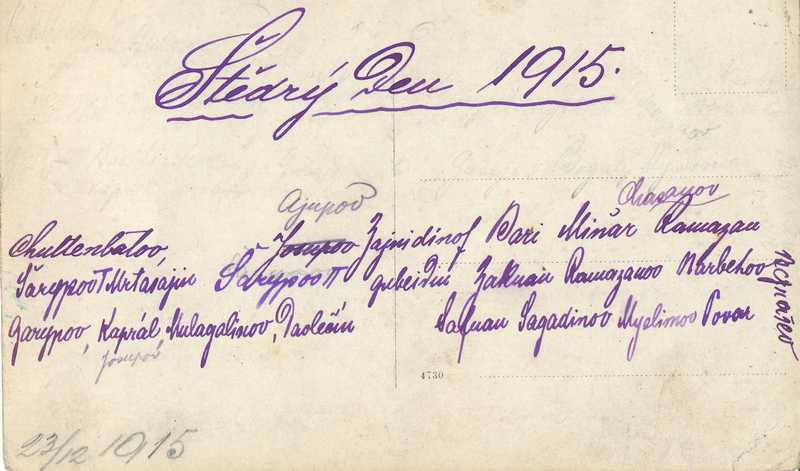 Štědrý Den 1915.
Ajupov Chasanov
Chultenbatov, Josupov Zajnidinof Bari Minăr Ramazan
Šarypov I Mrtasajin Šarypov II gubeidin Zakuan Ramazanov Narbekov
Garypov, Kaprál Mulagalinov, Davlečin Safuan Sagadinov Myslimov Povar
Josupov
4730
23/12 1915